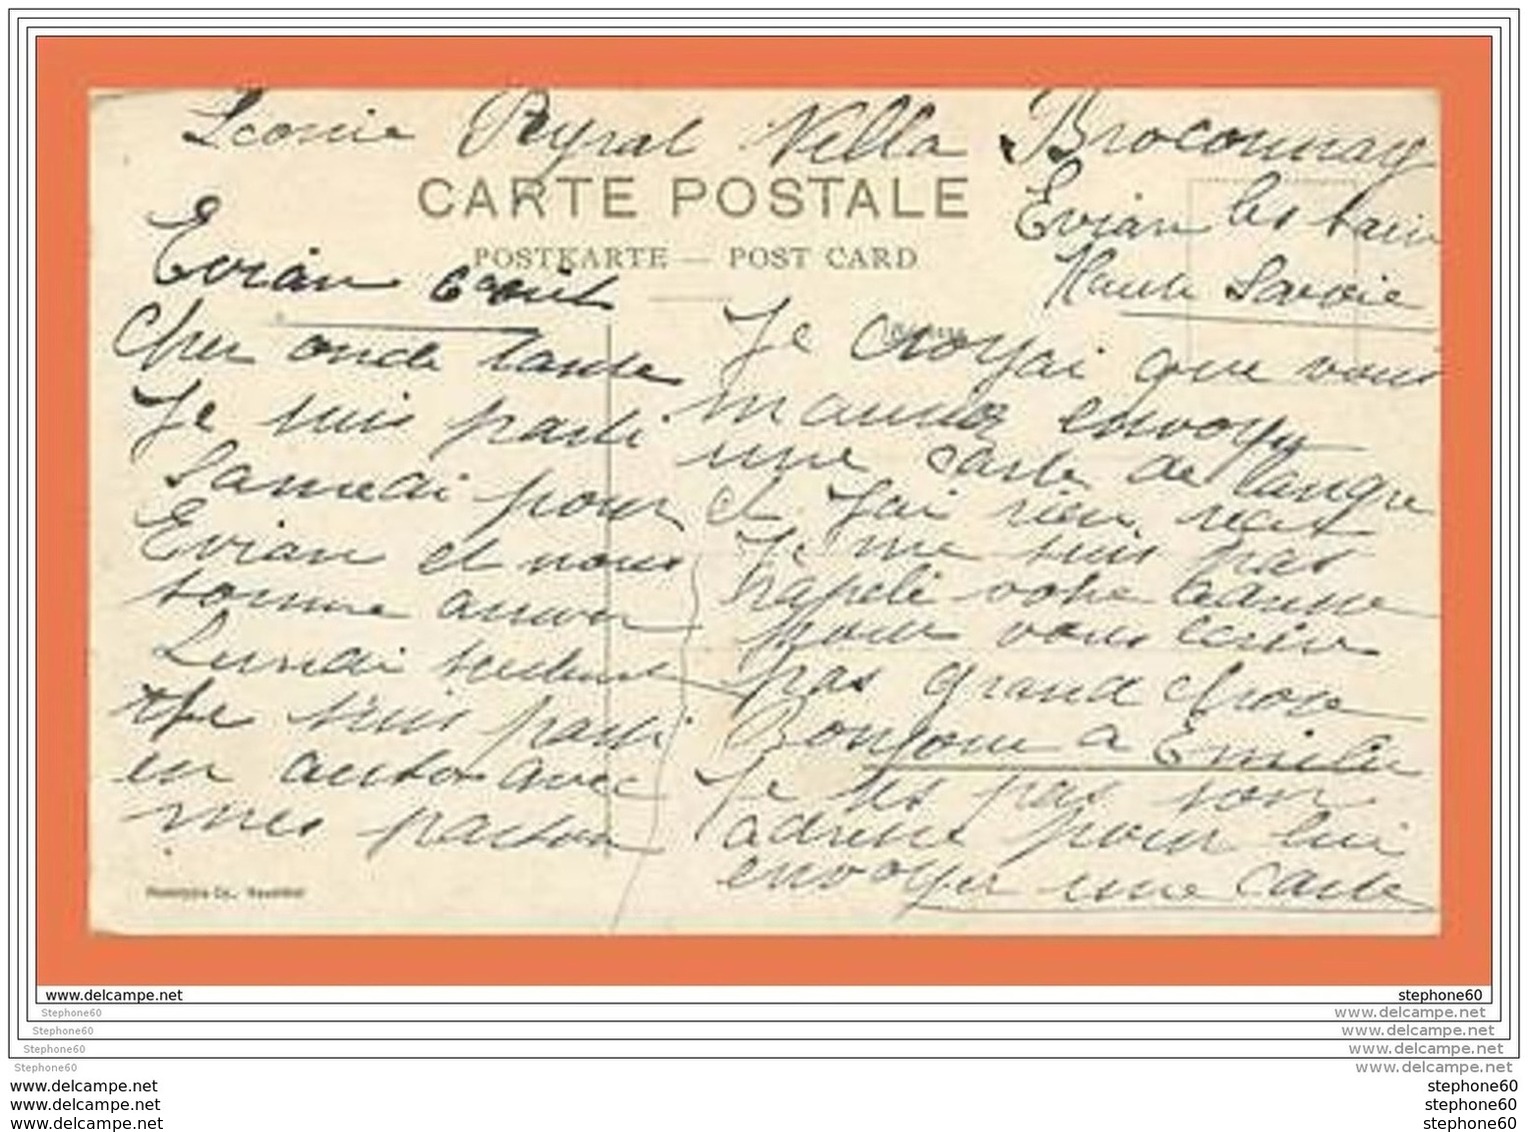 Leonie Peyral Villa Broconnay
CARTE POSTALE
Evian les bain
POSTKARTE — POST CARD
Haute Savoie
Evian 6 aout
Cher oncle tante
Je suis parti
Samedi pour
Evian et nous
somme arriver
Lundi seulement
Je suis parti
en auto avec
mes patron
Je croyai que vous
mauriez envoyer
une carte de Langre
et Jai rien recut
Je me suis pas
rapelé votre adresse
pour vous ecrire
pas grand chose
Bonjour a Emilie
Je ses pas son
adresse pour lui
envoyer une carte
www.delcampe.net
stephone60
Stephone60
www.delcampe.net
Stephone60
www.delcampe.net
Stephone60
www.delcampe.net
Stephone60
www.delcampe.net
www.delcampe.net
stephone60
www.delcampe.net
stephone60
www.delcampe.net
stephone60